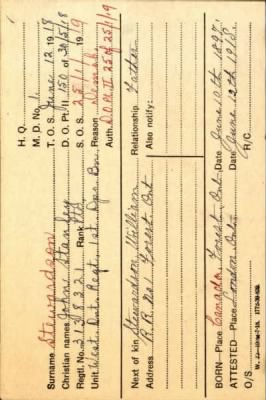 H. Q.
M. D. No. 1.
Surname Stewardson T. O. S. June 12 1918
Christian names John Stanley D. O. Pt. II. 150 of 30/5/18
Regtl. No. 2138221 Rank Pte S. O. S. 25/1/1919
Unit West. Ont. Regt. 1st. Dpo. Bn. Reason Demob.
Auth. D.O. Pt II 25 of 25/1/19
Next of kin Stewardson William Relationship Father
Address R.R. No 1 Forest, Ont Also notify:
BORN—Place Canada Forest, Ont. Date June 10th 1897
ATTESTED—Place London Ont. Date June 12th 1918.
O/S R/C